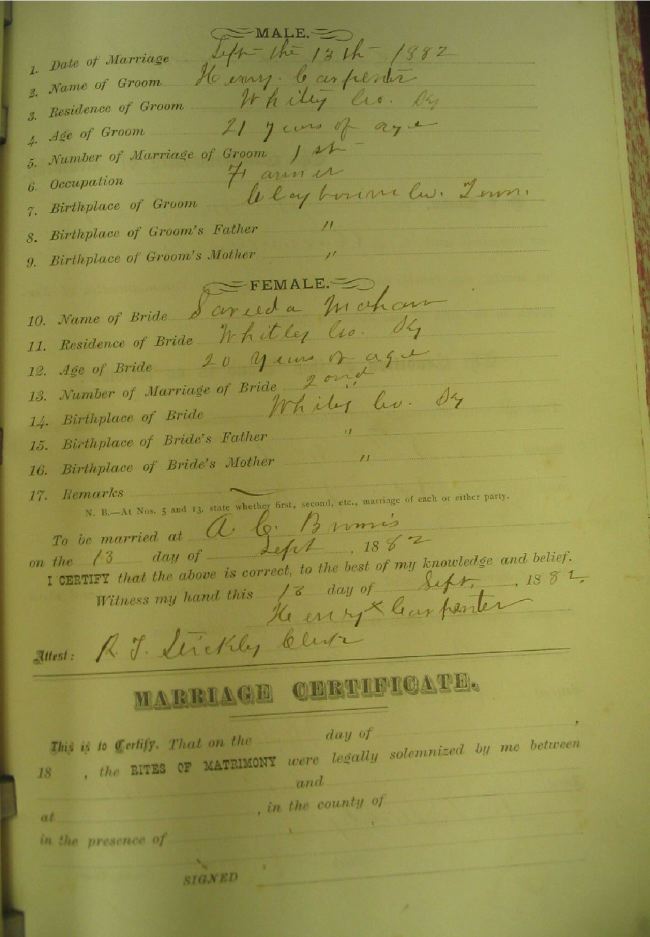 MALE.
1. Date of Marriage Sept the 13th 1882
2. Name of Groom Henry Carpenter
3. Residence of Groom Whitley Co. Ky
4. Age of Groom 21 years of age
5. Number of Marriage of Groom 1st
6. Occupation Farmer
7. Birthplace of Groom Claybourne Co. Tenn.
8. Birthplace of Groom's Father "
9. Birthplace of Groom's Mother "
FEMALE.
10. Name of Bride
11. Residence of Bride Whitley Co. Ky
12. Age of Bride 20 years of age
13. Number of Marriage of Bride 2ond
14. Birthplace of Bride Whitley Co. Ky
15. Birthplace of Bride's Father "
16. Birthplace of Bride's Mother "
17. Remarks
N. B.—At Nos. 5 and 13, state whether first, second, etc., marriage of each or either party.
To be married at A. C.
on the 13 day of Sept , 1882
I CERTIFY that the above is correct, to the best of my knowledge and belief.
Witness my hand this 13 day of Sept. , 1882.
Henry x Carpenter
Attest: Clerk
MARRIAGE CERTIFICATE.
This is to Certify, That on the day of ,
18 , the RITES OF MATRIMONY were legally solemnized by me between
and
at , in the county of
in the presence of
SIGNED